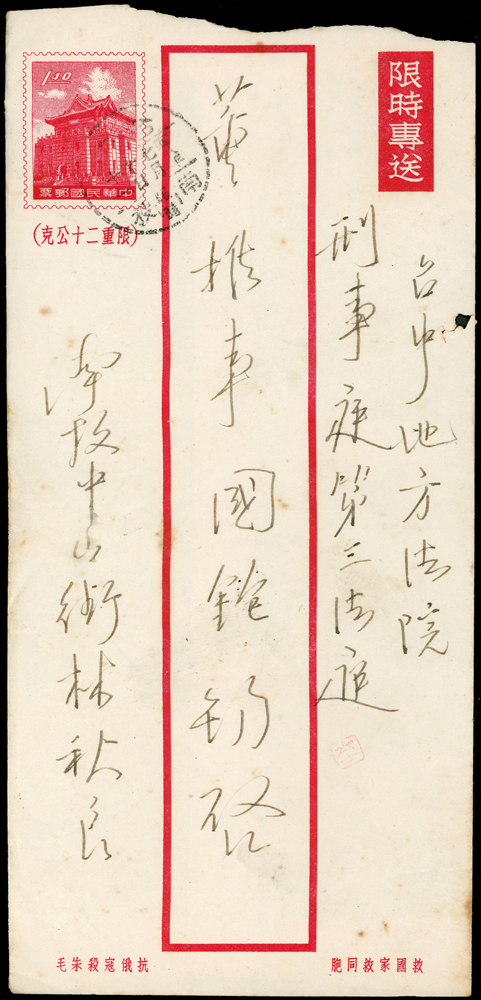 限時專送
台中地方法院
刑事庭第三法庭
黃推事國銓啓
1.40
中華民國郵票
(限重二十公克)
南投
南投中山街林秋良
救國家救同胞
抗俄寇殺朱毛